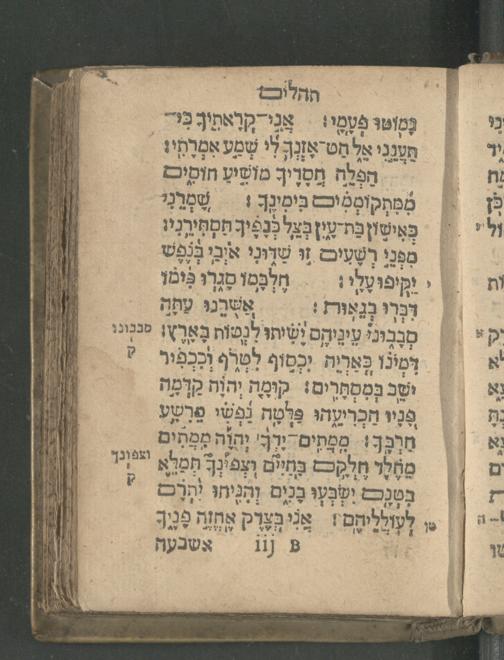 תהלים
נָמוֹטּוּ פְעָמָי׃ אֲנִי־קְרָאתִיךָ כִי־
תַעֲנֵנִי אֵל הַט־אָזְנְךָ לִי שְׁמַע אִמְרָתִי׃
הַפְלֵה חֲסָדֶיךָ מוֹשִׁיעַ חוֹסִים
מִמִּתְקוֹמְמִים בִּימִינֶךָ׃ שָׁמְרֵנִי
כְּאִישׁוֹן בַּת־עָיִן בְּצֵל כְּנָפֶיךָ תַּסְתִּירֵנִי׃
מִפְּנֵי רְשָׁעִים זוּ שַׁדּוּנִי אֹיְבַי בְּנֶפֶשׁ
יַקִּיפוּ עָלָי׃ חֶלְבָּמוֹ סָגְרוּ פִּימוֹ
דִּבְּרוּ בְגֵאוּת׃ אַשֻּׁרֵנוּ עַתָּה
סְבָבוּנִי עֵינֵיהֶם יָשִׁיתוּ לִנְטוֹת בָּאָרֶץ׃
סבבונו
ק
דִּמְיֹנוֹ כְּאַרְיֵה יִכְסוֹף לִטְרֹף וְכִכְפִיר
יֹשֵׁב בְּמִסְתָּרִים׃ קוּמָה יְהוָה קַדְּמָה
פָנָיו הַכְרִיעֵהוּ פַּלְּטָה נַפְשִׁי מֵרָשָׁע
חַרְבֶּךָ׃ מִמְתִים־יָדְךָ יְהוָה מִמְתִים
מֵחֶלֶד חֶלְקָם בַּחַיִּים וּצְפִינְךָ תְּמַלֵּא
וצפונך
ק
בִטְנָם יִשְׂבְּעוּ בָנִים וְהִנִּיחוּ יִתְרָם
לְעוֹלְלֵיהֶם׃ אֲנִי בְּצֶדֶק אֶחֱזֶה פָנֶיךָ
טו
אשבעה B iij